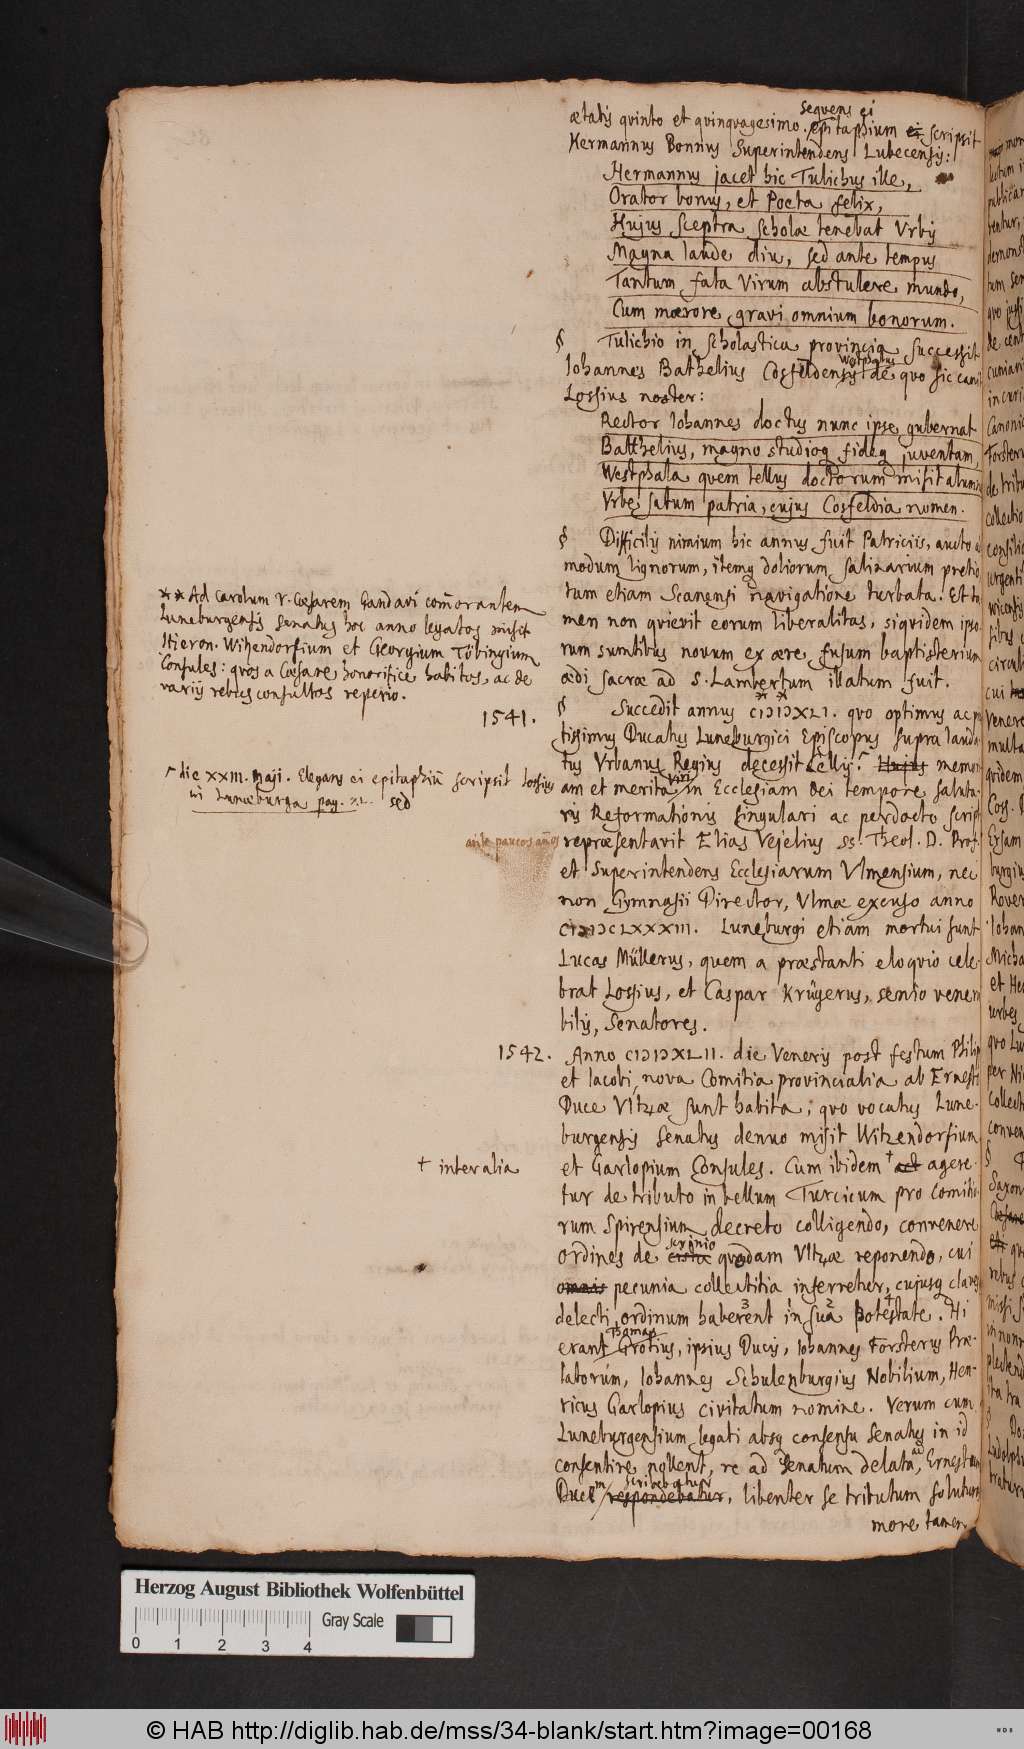 ætatis quinto et quinquagesimo. Sequens ei epitaphium ei scripsit
Hermannus Bonnus Superintendens Lubecensis:
Hermannus jacet hic Tulichus ille,
Orator bonus, et Poeta felix,
Hujus sceptra scholæ tenebat Urbis
Magna laude diu, sed ante tempus
Tantum fata Virum abstulere mundo,
Cum mœrore gravi omnium bonorum.
§ Tulichio in scholastica provincia successit
Iohannes Bathelius Cosfeldensis Westphalus de quo sic canit
Lossius noster:
Rector Iohannes doctus nunc ipse gubernat
Batthelius, magno studioq fideq juventam,
Westphala quem tellus doctorum misit alumnum
Urbe satum patria, cujus Cosfeldia nomen.
§ Difficilis nimium hic annus fuit Patriciis, aucto ad
modum lignorum, itemq doliorum salinarium pretio
tum etiam Scanensi navigatione turbata. Et ta
men non quievit eorum liberalitas, siquidem ipso
rum sumtibus novum ex ære fusum baptisterium
ædi sacræ ad S. Lambertum illatum fuit. **
** Ad Carolum V. Cæsarem Gandavi com̄orantem
Luneburgensis Senatus hoc anno legatos misit
Hieron. Witzendorfium et Georgium Töbingium
Consules: quos a Cæsare honorifice habitos, ac de
variis rebus consultos reperio.
1541.
§ Succedit annus CIↃIↃXLI. quo optimus ac po
tissimus Ducatus Luneburgici Episcopus supra lauda
tus Urbanus Regius decessit Cellis. Hujus memori
am et merita Viri in Ecclesiam Dei tempore saluta
ris Reformationis singulari ac perdocto script
repræsentavit Elias Vejelius SS. Theol. D. Prof.
et Superintendens Ecclesiarum Ulmensium, nec
non Gymnasii Director, Ulmæ excuso anno
CIↃIↃCLXXXIII. Luneburgi etiam mortui sunt
Lucas Müllerus, quem a præstanti eloquio cele
brat Lossius, et Caspar Krügerus, senio venera
bilis, Senatores.
⌜die XXIII. Maji. Elegans ei epitaphiū scripsit Lossius
in Luneburga pag. sed
ante paucos an̄os
1542. Anno CIↃIↃXLII. die Veneris post festum Philip
et Iacobi, nova Comitia provincialia ab Ernesto
Duce Ultzæ sunt habita; quo vocatus Lune-
burgensis Senatus denuo misit Witzendorfium
et Garlopium Consules. Cum ibidem † act agere-
† inter alia
tur de tributo in bellum Turcicum pro Comitio
rum Spirensium decreto colligendo, convenere
ordines de cista scrinio quodam Ultzæ reponendo, cui
omnis pecunia collectitia inferretur, cujusq claves
delecti ordinum haberent 3 in 1 sua 2 potestate 4. Hi
erant Thomas Grotius, ipsius Ducis, Iohannes Forsterus Præ-
latorum, Iohannes Schulenburgius Nobilium, Hen-
ricus Garlopius civitatum nomine. Verum cum
Luneburgensium legati absq consensu Senatus in id
consentire nollent, re ad Senatum delata, ad Ernestum
Ducem respondebatur scribebatur, libenter se tributum soluturum
more tamen
Herzog August Bibliothek Wolfenbüttel
Gray Scale
0 1 2 3 4
© HAB http://diglib.hab.de/mss/34-blank/start.htm?image=00168